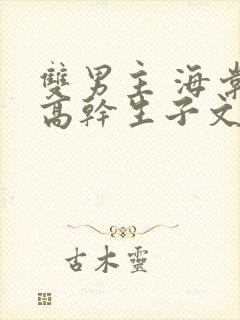 雙男主 海棠
高幹生子文
古木靈